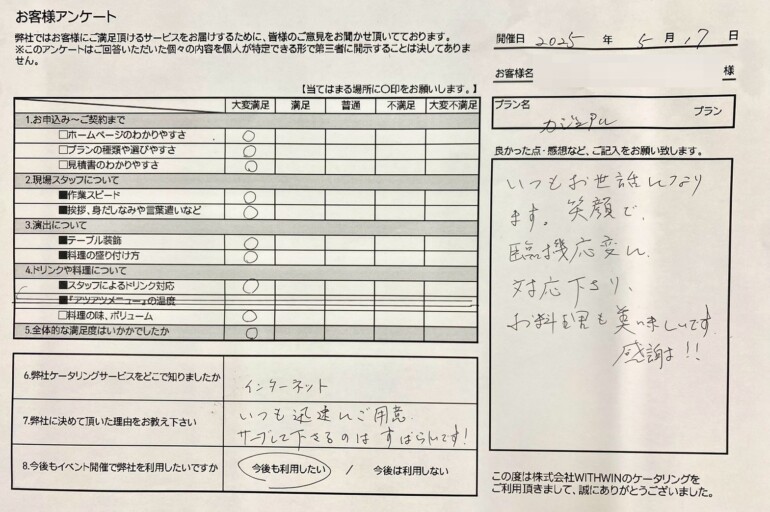 お客様アンケート
弊社ではお客様にご満足頂けるサービスをお届けするために、皆様のご意見をお聞かせ頂いております。
※このアンケートはご回答いただいた個々の内容を個人が特定できる形で第三者に開示することは決してありま
せん。
【当てはまる場所に○印をお願いします。】
大変満足 満足 普通 不満足 大変不満足
1.お申込み～ご契約まで
□ホームページのわかりやすさ ○
□プランの種類や選びやすさ ○
□見積書のわかりやすさ ○
2.現場スタッフについて
■作業スピード ○
■挨拶、身だしなみや言葉遣いなど ○
3.演出について
■テーブル装飾 ○
■料理の盛り付け方 ○
4.ドリンクや料理について
■スタッフによるドリンク対応 ○
■『アツアツメニュー』の温度
□料理の味、ボリューム ○
5.全体的な満足度はいかがでしたか ○
6.弊社ケータリングサービスをどこで知りましたか インターネット
7.弊社に決めて頂いた理由をお教え下さい いつも迅速にご用意
サーブして下さるのは すばらしいです!
8.今後もイベント開催で弊社を利用したいですか 今後も利用したい / 今後は利用しない
開催日 2025 年 5 月 17 日
お客様名 様
プラン名 カジュアル プラン
良かった点・感想など、ご記入をお願い致します。
いつもお世話になり
ます。笑顔で、
臨機応変に
対応下さり、
お料理も美味しいです
感謝!!
この度は株式会社WITHWINのケータリングを
ご利用頂きまして、誠にありがとうございました。